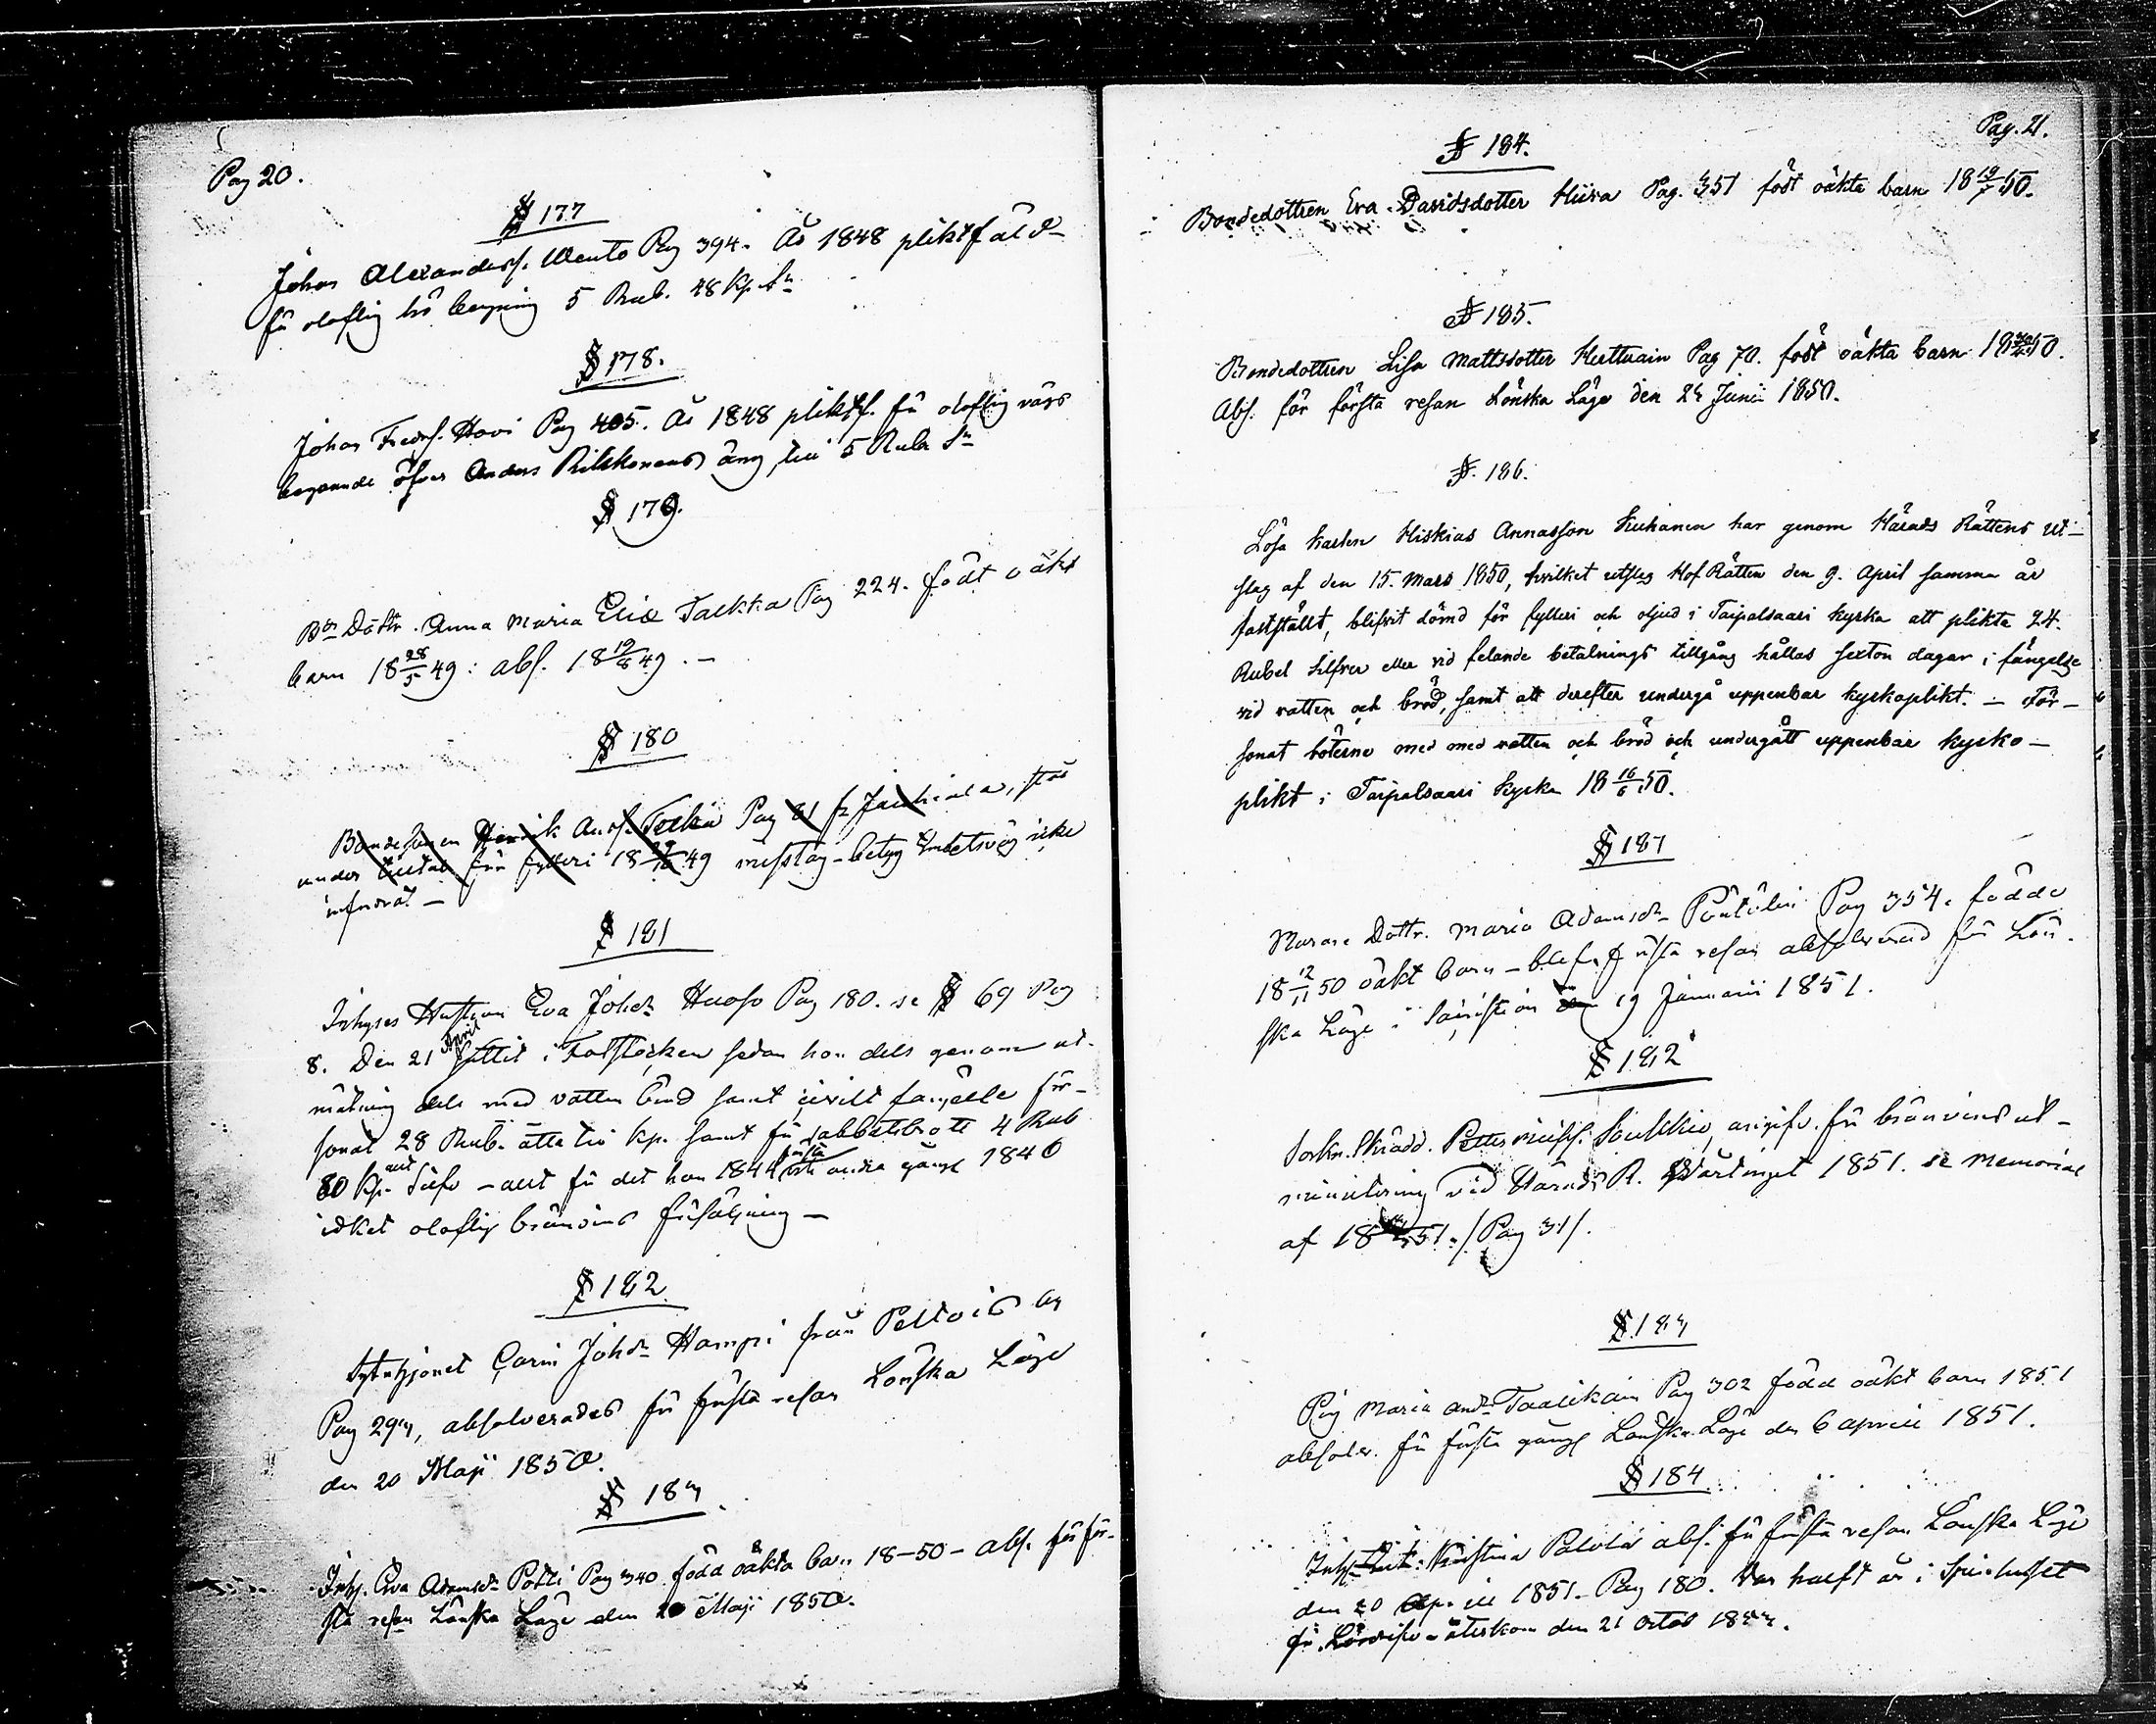 Pag 20.
§ 177
Johan Alexanderss. Wento Pag 394. År 1848 pliktfäld
för olaflig bergning 5 Rub. 48 Kp. Sr
§ 178.
Johan Fredss. Hovi Pag 405. År 1848 pliktf. för olaflig
öfver Anders Rikkonens äng, till 5 Rub Sr
§ 179.
Bde Dottr. Anna Maria Talkka Pag 224. födt oäkt
barn 18 28/5 49: abs. 18 19/8 49. –
§ 180
Bondesonen Henrik Pag 61 fr
under för fylleri 18 49 misstag – betyg icke
infordrat –
§ 181
Inhyses Hustrun Eva Johsdr Huoso Pag 180. se § 69 Pag
8. Den 21 April suttit i Fotstocken sedan hon dels genom ut-
mätning dels med vatten bröd samt civilt fängelse för-
sonat 28 Rub. åttatio kp. samt för sabbatsbrott 4 Rub
80 Kp. Silfv – allt för det hon 1844 första andra gånge 1846
idket olaflig brännvins försäljning –
§ 182
Carin Johdr Hampi från Peltois by
Pag 293, absolverades för första resan Lönska Läge
den 20 Maji 1850.
§ 183
Inhy. Eva Adamsdr Potti Pag 340 född oäkta barn 18–50 – abs. för för-
sta resan Lönska Läge den 20 Maji 1850.
Pag. 21.
§ 184.
Bondedottren Eva Davidsdotter Hiira Pag. 351 födt oäkta barn 18 19/5 50.
§ 185.
Bondedottren Lisa Mattsdotter Herttuain Pag 70. födt oäkta barn 18 50.
Abs. för första resan Lönska Läge den 24 Junii 1850.
§. 186.
Lösa Karlen Hiskias Annasson Kuhanen har genom Härads Rättens ut-
slag af den 15. Mars 1850, hvilket utslag Hof Rätten den 9. April samma år
fastställt, blifvit dömd för fylleri och oljud i Taipalsaari kyrka att plikta 24.
Rubel Silfver eller vid felande betalnings tillgång hållas sexton dagar i fängelse
vid vatten och bröd, samt att derefter undergå uppenbar kyrkoplikt. – För-
sonat böterne med med vatten och bröd och undergått uppenbar kyrko-
plikt i Taipalsaari Kyrka 18 16/6 50.
§ 187
Dottr. Maria Adamsdr Pag 354. födde
18 12/11 50 oäkt barn – blef första resan absolverad för Lön-
ska Läge i 19 Januarii 1851.
§ 182
Sockn. Skrädd. Petter angifv. för brännvins ut-
minutering vid Härads R. Wårtinget 1851. se Memorial
af 18 51. /Pag 31/.
§. 183
Pig Maria Andr Taalikain Pag 302 född oäkt barn 1851
absolv. för första gånge Lönska Läge den 6 aprill 1851.
§ 184
Inhy Kristina Palola abs. för första resan Lönska Läge
den 20 Aprill 1851. Pag 180. Var halft år i Spinhuset
för återkom den 21 Octob